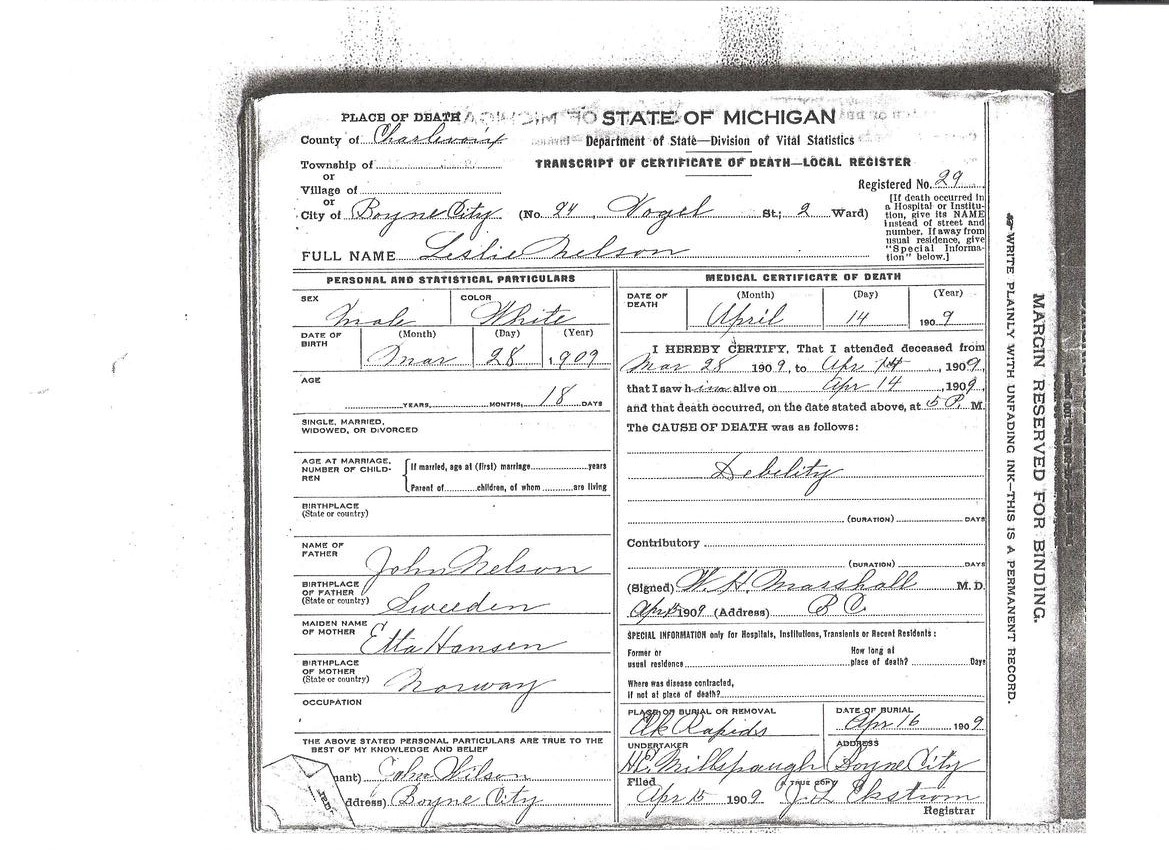 PLACE OF DEATH
County of Charlevoix
Township of
or
Village of
or
City of Boyne City (No. 24, Vogel St.; 2 Ward)
STATE OF MICHIGAN
Department of State—Division of Vital Statistics
TRANSCRIPT OF CERTIFICATE OF DEATH—LOCAL REGISTER
Registered No. 29
[If death occurred in
a Hospital or Institu-
tion, give its NAME
instead of street and
number. If away from
usual residence, give
"Special Informa-
tion" below.]
FULL NAME Leslie Nelson
PERSONAL AND STATISTICAL PARTICULARS
SEX
Male
COLOR
White
DATE OF
BIRTH
(Month) (Day) (Year)
Mar 28 1909
AGE
YEARS, MONTHS, 18 DAYS
SINGLE, MARRIED,
WIDOWED, OR DIVORCED
AGE AT MARRIAGE,
NUMBER OF CHILD-
REN
If married, age at (first) marriage years
Parent of children, of whom are living
BIRTHPLACE
(State or country)
NAME OF
FATHER
John Nelson
BIRTHPLACE
OF FATHER
(State or country)
Sweeden
MAIDEN NAME
OF MOTHER
Etta Hansen
BIRTHPLACE
OF MOTHER
(State or country)
Norway
OCCUPATION
THE ABOVE STATED PERSONAL PARTICULARS ARE TRUE TO THE
BEST OF MY KNOWLEDGE AND BELIEF
mant) John Nilson
ddress) Boyne City
MEDICAL CERTIFICATE OF DEATH
DATE OF
DEATH
(Month) (Day) (Year)
April 14 1909
I HEREBY CERTIFY, That I attended deceased from
Mar 28 1909, to Apr 14, 1909,
that I saw him alive on Apr 14, 1909,
and that death occurred, on the date stated above, at 5 P. M.
The CAUSE OF DEATH was as follows:
Debelity
(DURATION) DAYS
Contributory
(DURATION) DAYS
(Signed) W. H. Marshall M. D.
Apr 15 1909 (Address) B C.
SPECIAL INFORMATION only for Hospitals, Institutions, Transients or Recent Residents:
Former or
usual residence
How long at
place of death? Days
Where was disease contracted,
if not at place of death?
PLACE OF BURIAL OR REMOVAL
Elk Rapids
DATE OF BURIAL
Apr 16 1909
UNDERTAKER
Millspaugh
ADDRESS
Boyne City
Filed
Apr 15 1909
A TRUE COPY
Ekstrom
Registrar
WRITE PLAINLY WITH UNFADING INK—THIS IS A PERMANENT RECORD.
MARGIN RESERVED FOR BINDING.